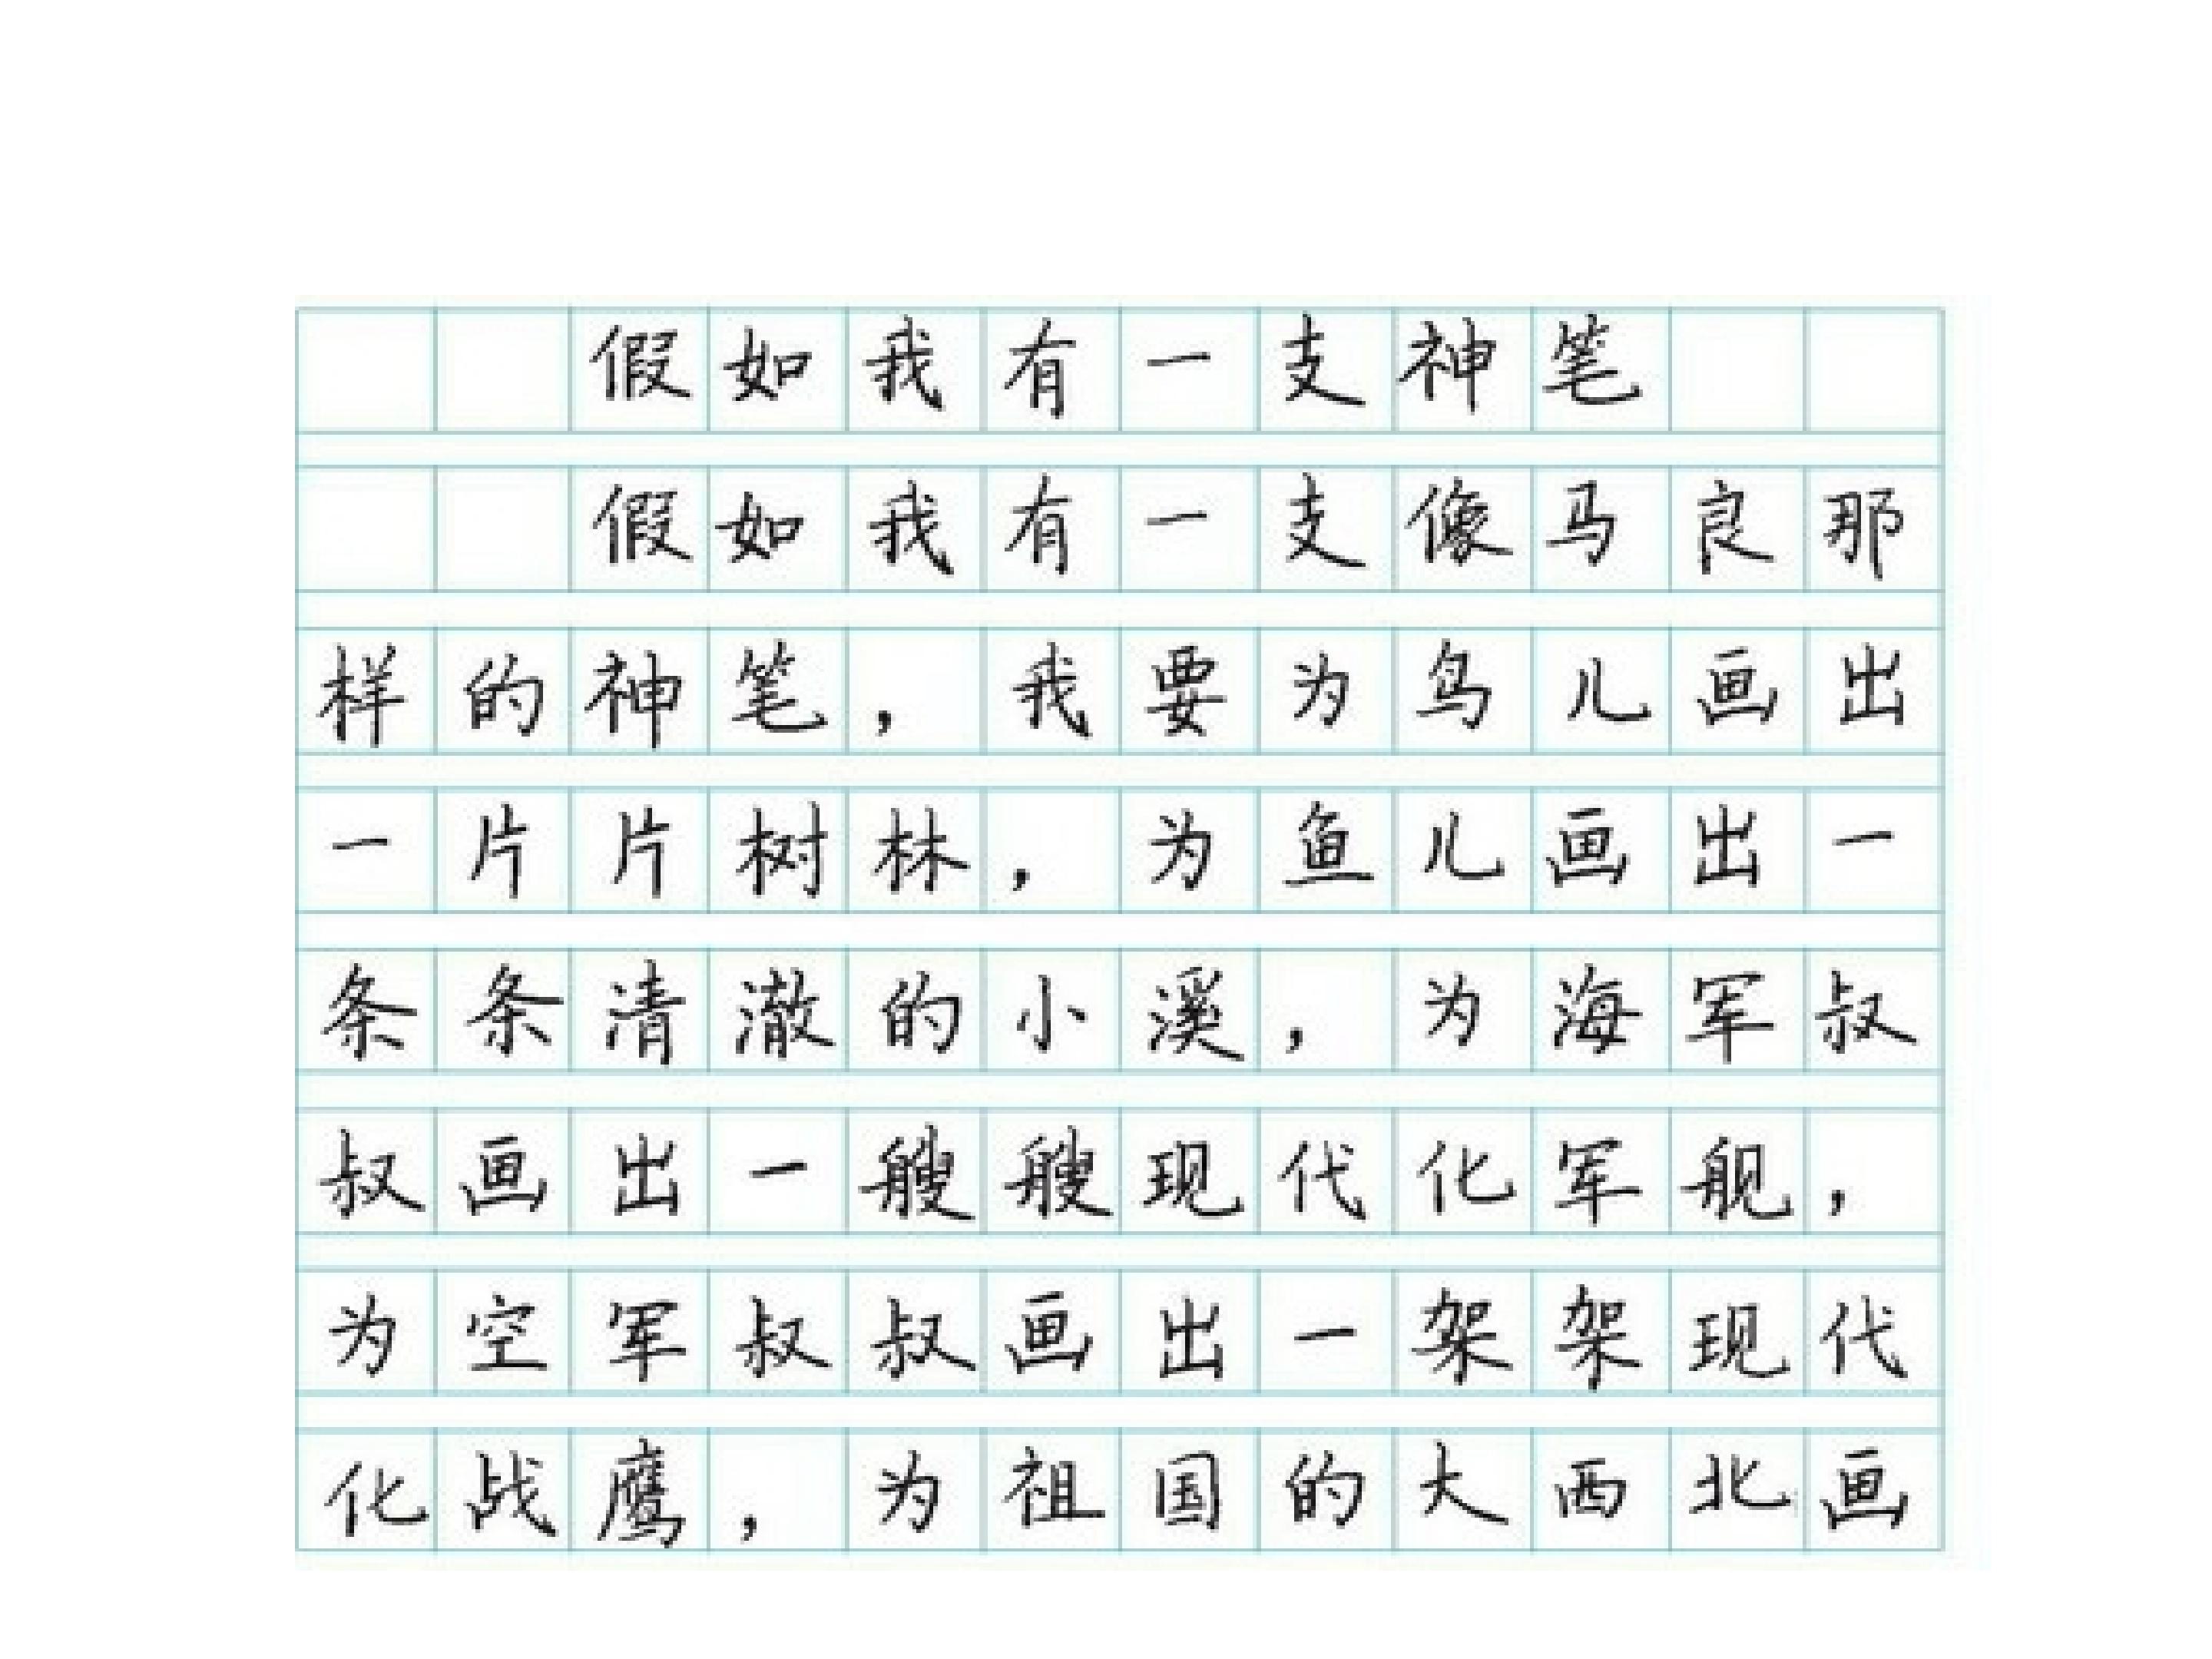 假如我有一支神笔
假如我有一支像马良那
样的神笔，我要为鸟儿画出
一片片树林，为鱼儿画出一
条条清澈的小溪，为海军叔
叔画出一艘艘现代化军舰，
为空军叔叔画出一架架现代
化战鹰，为祖国的大西北画